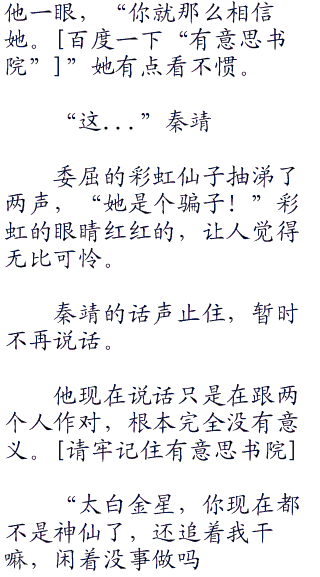 他一眼，“你就那么相信
她。[百度一下“有意思书
院”]”她有点看不惯。
“这...”秦靖
委屈的彩虹仙子抽涕了
两声，“她是个骗子！”彩
虹的眼睛红红的，让人觉得
无比可怜。
秦靖的话声止住，暂时
不再说话。
他现在说话只是在跟两
个人作对，根本完全没有意
义。[请牢记住有意思书院]
“太白金星，你现在都
不是神仙了，还追着我干
嘛，闲着没事做吗